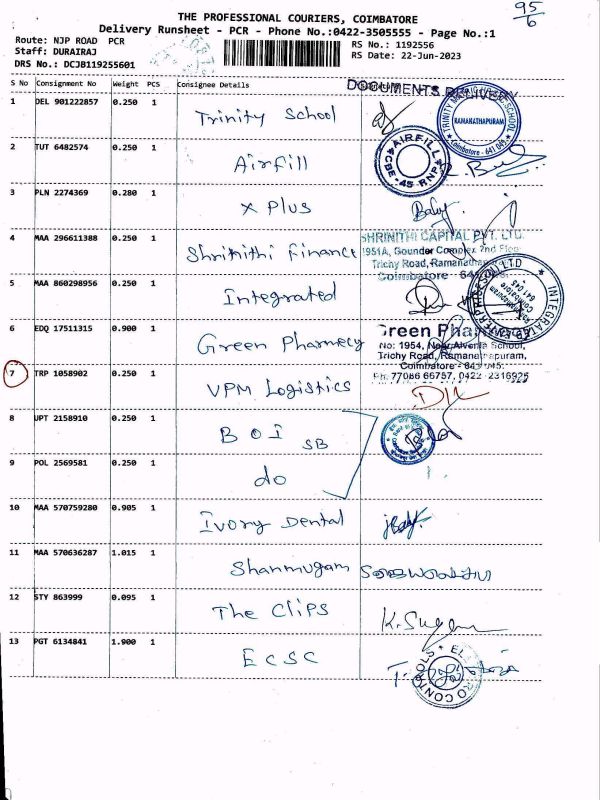 95/6
THE PROFESSIONAL COURIERS, COIMBATORE
Delivery Runsheet - PCR - Phone No.:0422-3505555 - Page No.:1
Route: NJP ROAD PCR
RS No.: 1192556
Staff: DURAIRAJ
RS Date: 22-Jun-2023
DRS No.: DCJB119255601
S No Consignment No Weight PCS Consignee Details
DOCUMENTS DELIVERY
1 DEL 901222857 0.250 1 Trinity School
RAMANATHAPURAM
Coimbatore - 641 045
2 TUT 6482574 0.250 1 Airfill
AIRFILL CBE-45 RNP
3 PLN 2274369 0.280 1 X Plus
4 MAA 296611388 0.250 1 Shrinithi Finance
SHRINITHI CAPITAL PVT. LTD.
1951A, Gounder Complex 2nd Floor
Trichy Road, Ramanathapuram
Coimbatore - 641
5 MAA 860298956 0.250 1 Integrated
6 EDQ 17511315 0.900 1 Green Pharmecy
Green Pharmacy
No: 1954, Near Alvernia School,
Trichy Road, Ramanathapuram,
Coimbatore - 641 045.
Ph: 77086 66757, 0422 - 2316925
7 TRP 1058902 0.250 1 VPM Logistics
D/L
8 UPT 2158910 0.250 1 BOI SB
9 POL 2569581 0.250 1 do
10 MAA 570759280 0.905 1 Ivory Dental
11 MAA 570636287 1.015 1 Shanmugam
12 STY 863999 0.095 1 The Clips
K. Sugan
13 PGT 6134841 1.900 1 ECSC